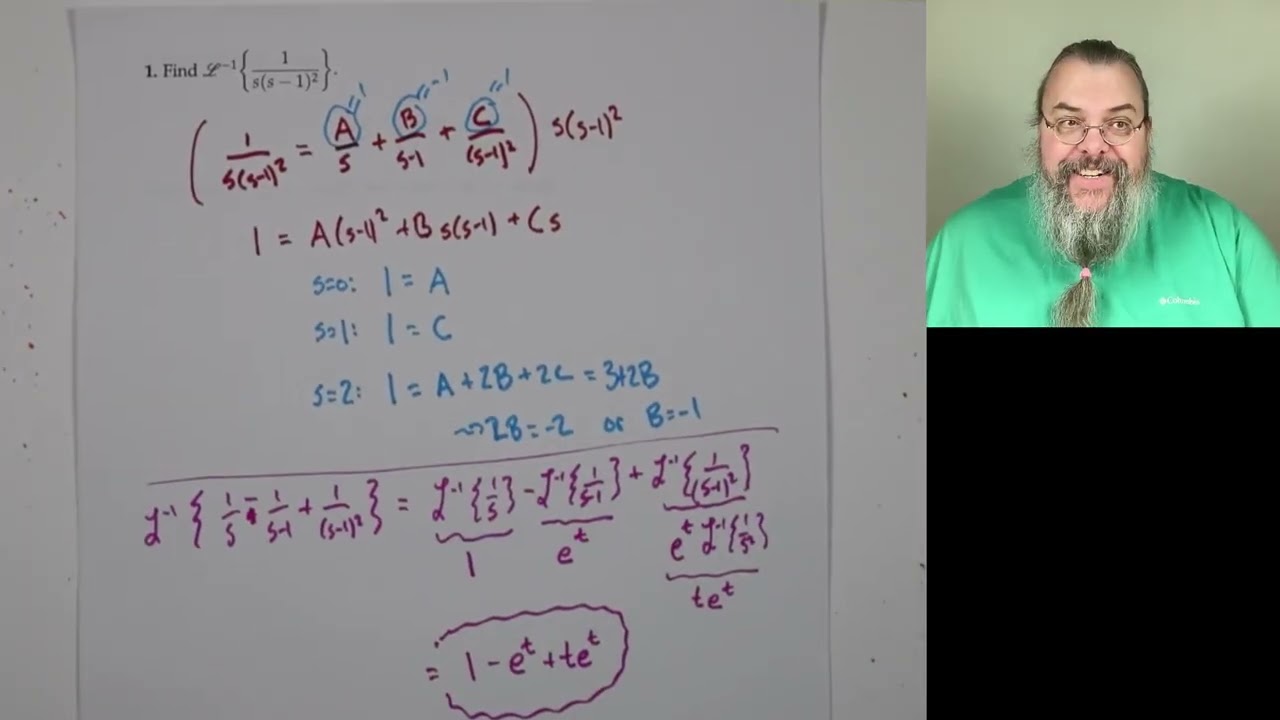 1. Find ℒ⁻¹{1/(s(s − 1)²)}.
"1 "-1 "1
( 1/(s(s-1)²) = A/s + B/(s-1) + C/(s-1)² ) s(s-1)²
1 = A(s-1)² + B s(s-1) + Cs
s=0: 1 = A
s=1: 1 = C
s=2: 1 = A + 2B + 2C = 3+2B
⇝ 2B = -2 or B = -1
ℒ⁻¹ { 1/s - 1/(s-1) + 1/(s-1)² } = ℒ⁻¹{1/s} - ℒ⁻¹{1/(s-1)} + ℒ⁻¹{1/(s-1)²}
1 eᵗ eᵗ ℒ⁻¹{1/s²}
teᵗ
= 1 - eᵗ + teᵗ
Columbia